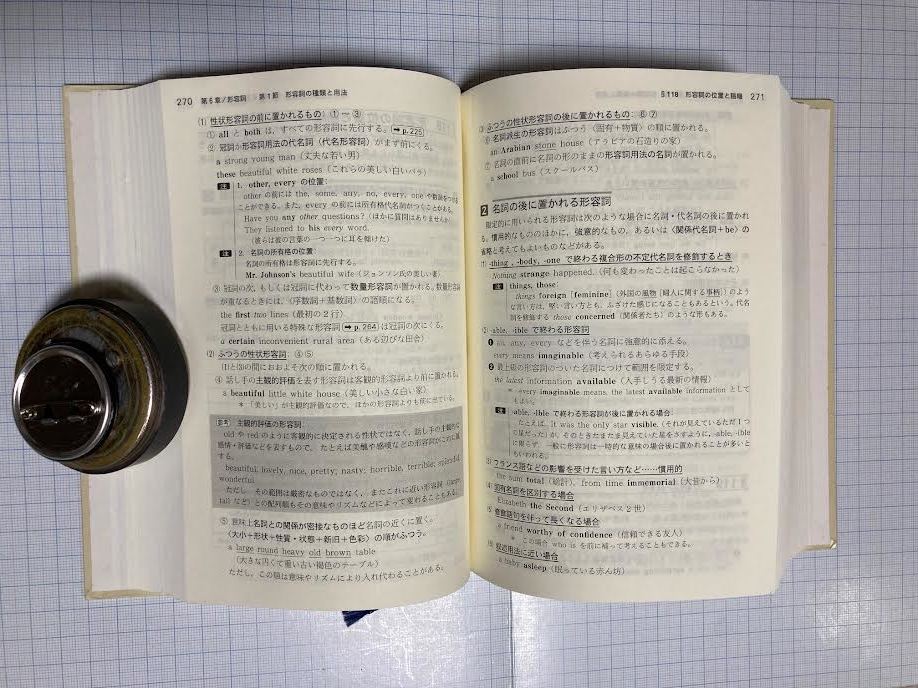 270 第6章／形容詞 第1節 形容詞の種類と用法
(1) 性状形容詞の前に置かれるもの：①—③
① all と both は，すべての形容詞に先行する。(➡ p.225)
② 冠詞か形容詞用法の代名詞(代名形容詞)がまず前にくる。
a strong young man (丈夫な若い男)
these beautiful white roses (これらの美しい白いバラ)
注 1. other, every の位置：
other の前には the, some, any, no, every, one や数詞をつける
ことができる。また, every の前には所有格代名詞がつくことがある。
Have you any other questions? (ほかに質問はありませんか)
They listened to his every word.
(彼らは彼の言葉の一つ一つに耳を傾けた)
注 2. 名詞の所有格の位置：
名詞の所有格は形容詞に先行する。
Mr. Johnson's beautiful wife (ジョンソン氏の美しい妻)
③ 冠詞の次，もしくは冠詞に代わって数量形容詞が置かれる。数量形容詞
が重なるときには，〈序数詞＋基数詞〉の語順になる。
the first two lines (最初の2行)
冠詞とともに用いる特殊な形容詞(➡ p.264)は冠詞の次にくる。
a certain inconvenient rural area (ある辺ぴな田舎)
(2) ふつうの性状形容詞：④⑤
(1)と(3)の間におおよそ次の順に置かれる。
④ 話し手の主観的評価を表す形容詞は客観的形容詞より前に置かれる。
a beautiful little white house (美しい小さな白い家)
＊「美しい」が主観的評価なので，ほかの形容詞よりも前に出ている。
参考 主観的評価の形容詞：
old や red のように客観的に決定される性状ではなく，話し手の主観的な
感情・評価などを表すもので，たとえば美醜や感嘆などの形容詞がこれに属
する。
beautiful, lovely, nice, pretty; nasty, horrible, terrible; splendid,
wonderful
ただし，その範囲は厳密なものではなく，またこれに近い形容詞 (large,
tall など) との配列順もその意味やリズムなどによって変わることもある。
⑤ 意味上名詞との関係が密接なものほど名詞の近くに置く。
〈大小＋形状＋性質・状態＋新旧＋色彩〉の順がふつう。
a large round heavy old brown table
(大きな円くて重い古い褐色のテーブル)
ただし，この順は意味やリズムにより入れ代わることがある。
§118 形容詞の位置と語順 271
(3) ふつうの性状形容詞の後に置かれるもの：⑥⑦
⑥ 名詞派生の形容詞はふつう〈固有＋物質〉の順に置かれる。
an Arabian stone house (アラビアの石造りの家)
⑦ 名詞の直前に名詞の形のままの形容詞用法の名詞が置かれる。
a school bus (スクールバス)
2 名詞の後に置かれる形容詞
限定的に用いられる形容詞は次のような場合に名詞・代名詞の後に置かれ
る。慣用的なもののほかに，強意的なもの，あるいは〈関係代名詞＋be〉の
省略と考えてもよいものなどがある。
(1) -thing, -body, -one で終わる複合形の不定代名詞を修飾するとき
Nothing strange happened. (何も変わったことは起こらなかった)
注 things, those:
things foreign [feminine] (外国の風物 [婦人に関する事柄]) のよう
な言い方は，堅い言い方とも，ふざけた感じになることもあるという。代名
詞を修飾する those concerned (関係者たち) のような形もある。
(2) -able, -ible で終わる形容詞
❶ all, any, every などを伴う名詞に強意的に添える。
every means imaginable (考えられるあらゆる手段)
❷ 最上級の形容詞のついた名詞につけて範囲を限定する。
the latest information available (入手しうる最新の情報)
＊ every imaginable means, the latest available information として
もよい。
注 -able, -ible で終わる形容詞が後に置かれる場合：
たとえば，It was the only star visible. (それが見えていたただ1
つの星だった) が，そのときたまたま見えていた星をさすように，-able, -ible
に限らず，一般に形容詞は一時的な意味の場合後に置かれることが多いと
もいわれる。
(3) フランス語などの影響を受けた言い方など……慣用的
the sum total (総計), from time immemorial (大昔から)
(4) 固有名詞を区別する場合
Elizabeth the Second (エリザベス2世)
(5) 修飾語句を伴って長くなる場合
a friend worthy of confidence (信頼できる友人)
＊ この場合 who is を前に補って考えることもできる。
(6) 叙述用法に近い場合
a baby asleep (眠っている赤ん坊)